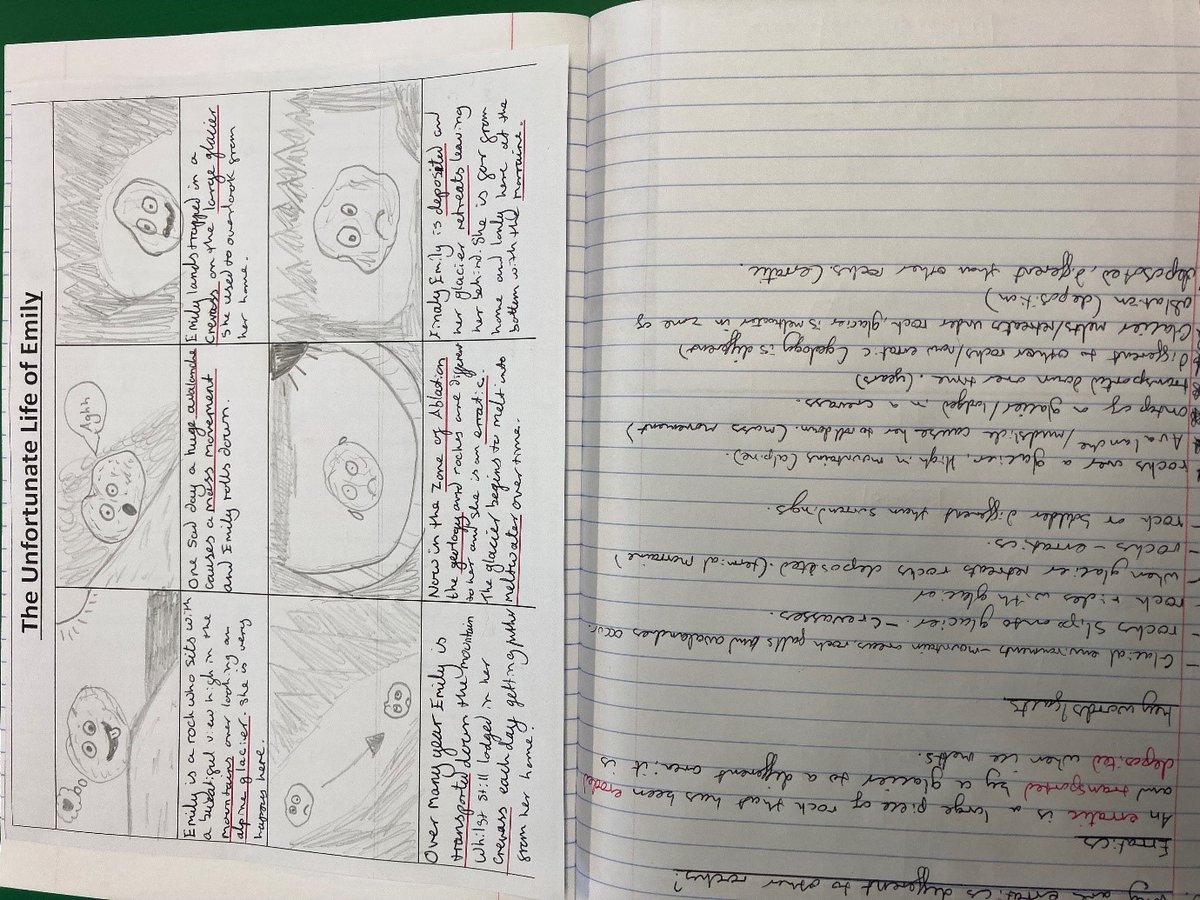 The Unfortunate Life of Emily
Emily is a rock who sits with
a beautiful view high in the
mountains over looking an
alpine glacier. She is very
happy here.
Aghh
One Sad day a huge avalanche
causes a mass movement
and Emily rolls down.
Emily lands trapped in a
Crevass on the large glacier
she used to overlook from
her home.
Over many year Emily is
transported down the mountain
whilst still lodged in her
Crevass each day getting further
from her home.
Now in the Zone of Ablation
the geology and rocks are different
to her and she is an erratic.
The glacier begins to melt into
meltwater over time.
Finaly Emily is deposited and
her glacier retreats leaving
her behind. She is far from
home and lonly here at the
bottom with the morraine.
are erratics different to other rocks?
Erratics
An erratic is a large piece of rock that has been eroded
and transported by a glacier to a different area. it is
deposited when ice melts.
Key words/facts
- Glacial environments - mountain areas, rock falls and avalanches occur.
rocks slip onto glacier. - Crevasses.
rock rides with glacier
- when glacier retreats rocks deposited. (terminal morraine)
- rocks - erratics.
- rock or boulder different than surroundings.
rocks over a glacier, High in mountains (alpine).
Avalanche/mudslide cause her to roll down. (mass movement)
ontop of a glacier/lodged in a crevass.
transported down over time. (years)
Different to other rocks/now erratic (geology is different)
Glacier melts/retreats under rock, glacier is meltwater in zone of
ablation (deposition)
deposited, different than other rocks. (erratic.